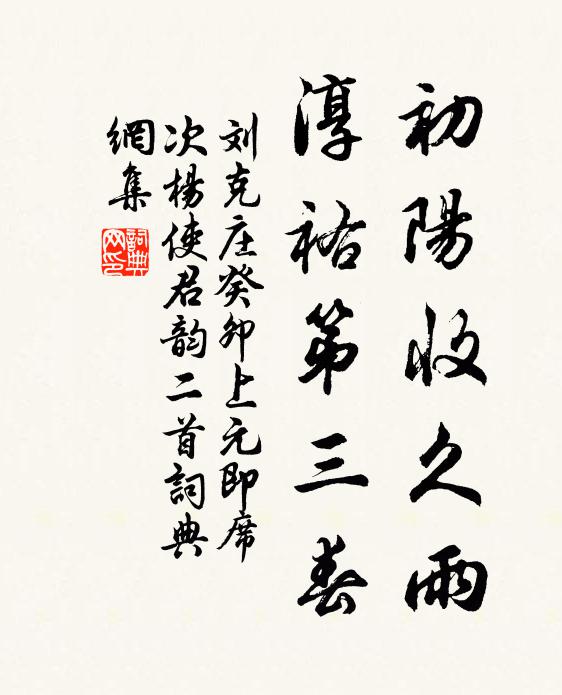 初陽收久雨
淳祐第三春
刘克庄癸卯上元即席
次楊使君韵二首詞典
網集
詞典
网印